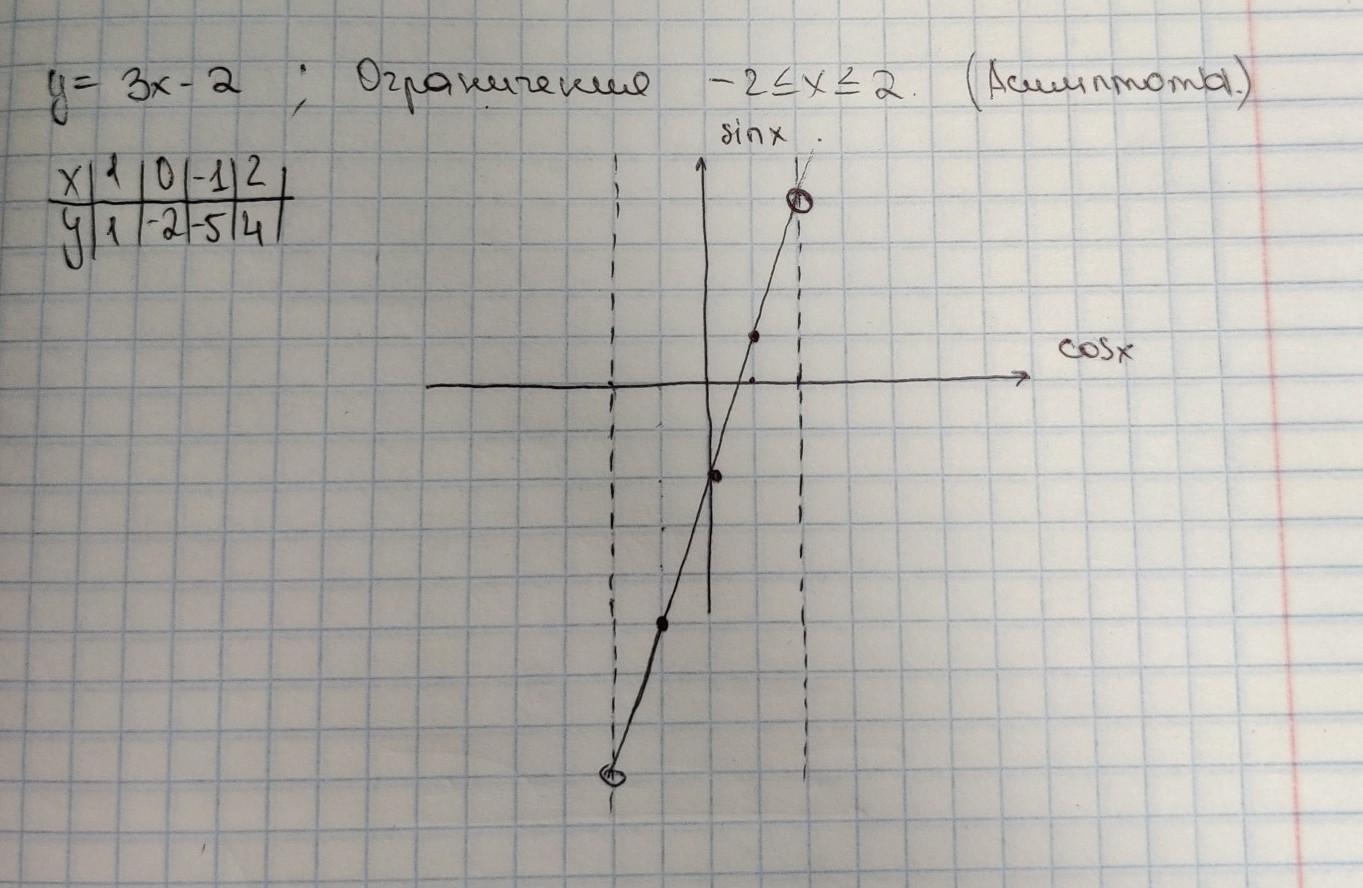 y = 3x - 2 ; Ограничение -2 ≤ x ≤ 2. (Асимптота.)
sin x
x | 1 | 0 | -1 | 2 |
y | 1 | -2 | -5 | 4 |
cos x